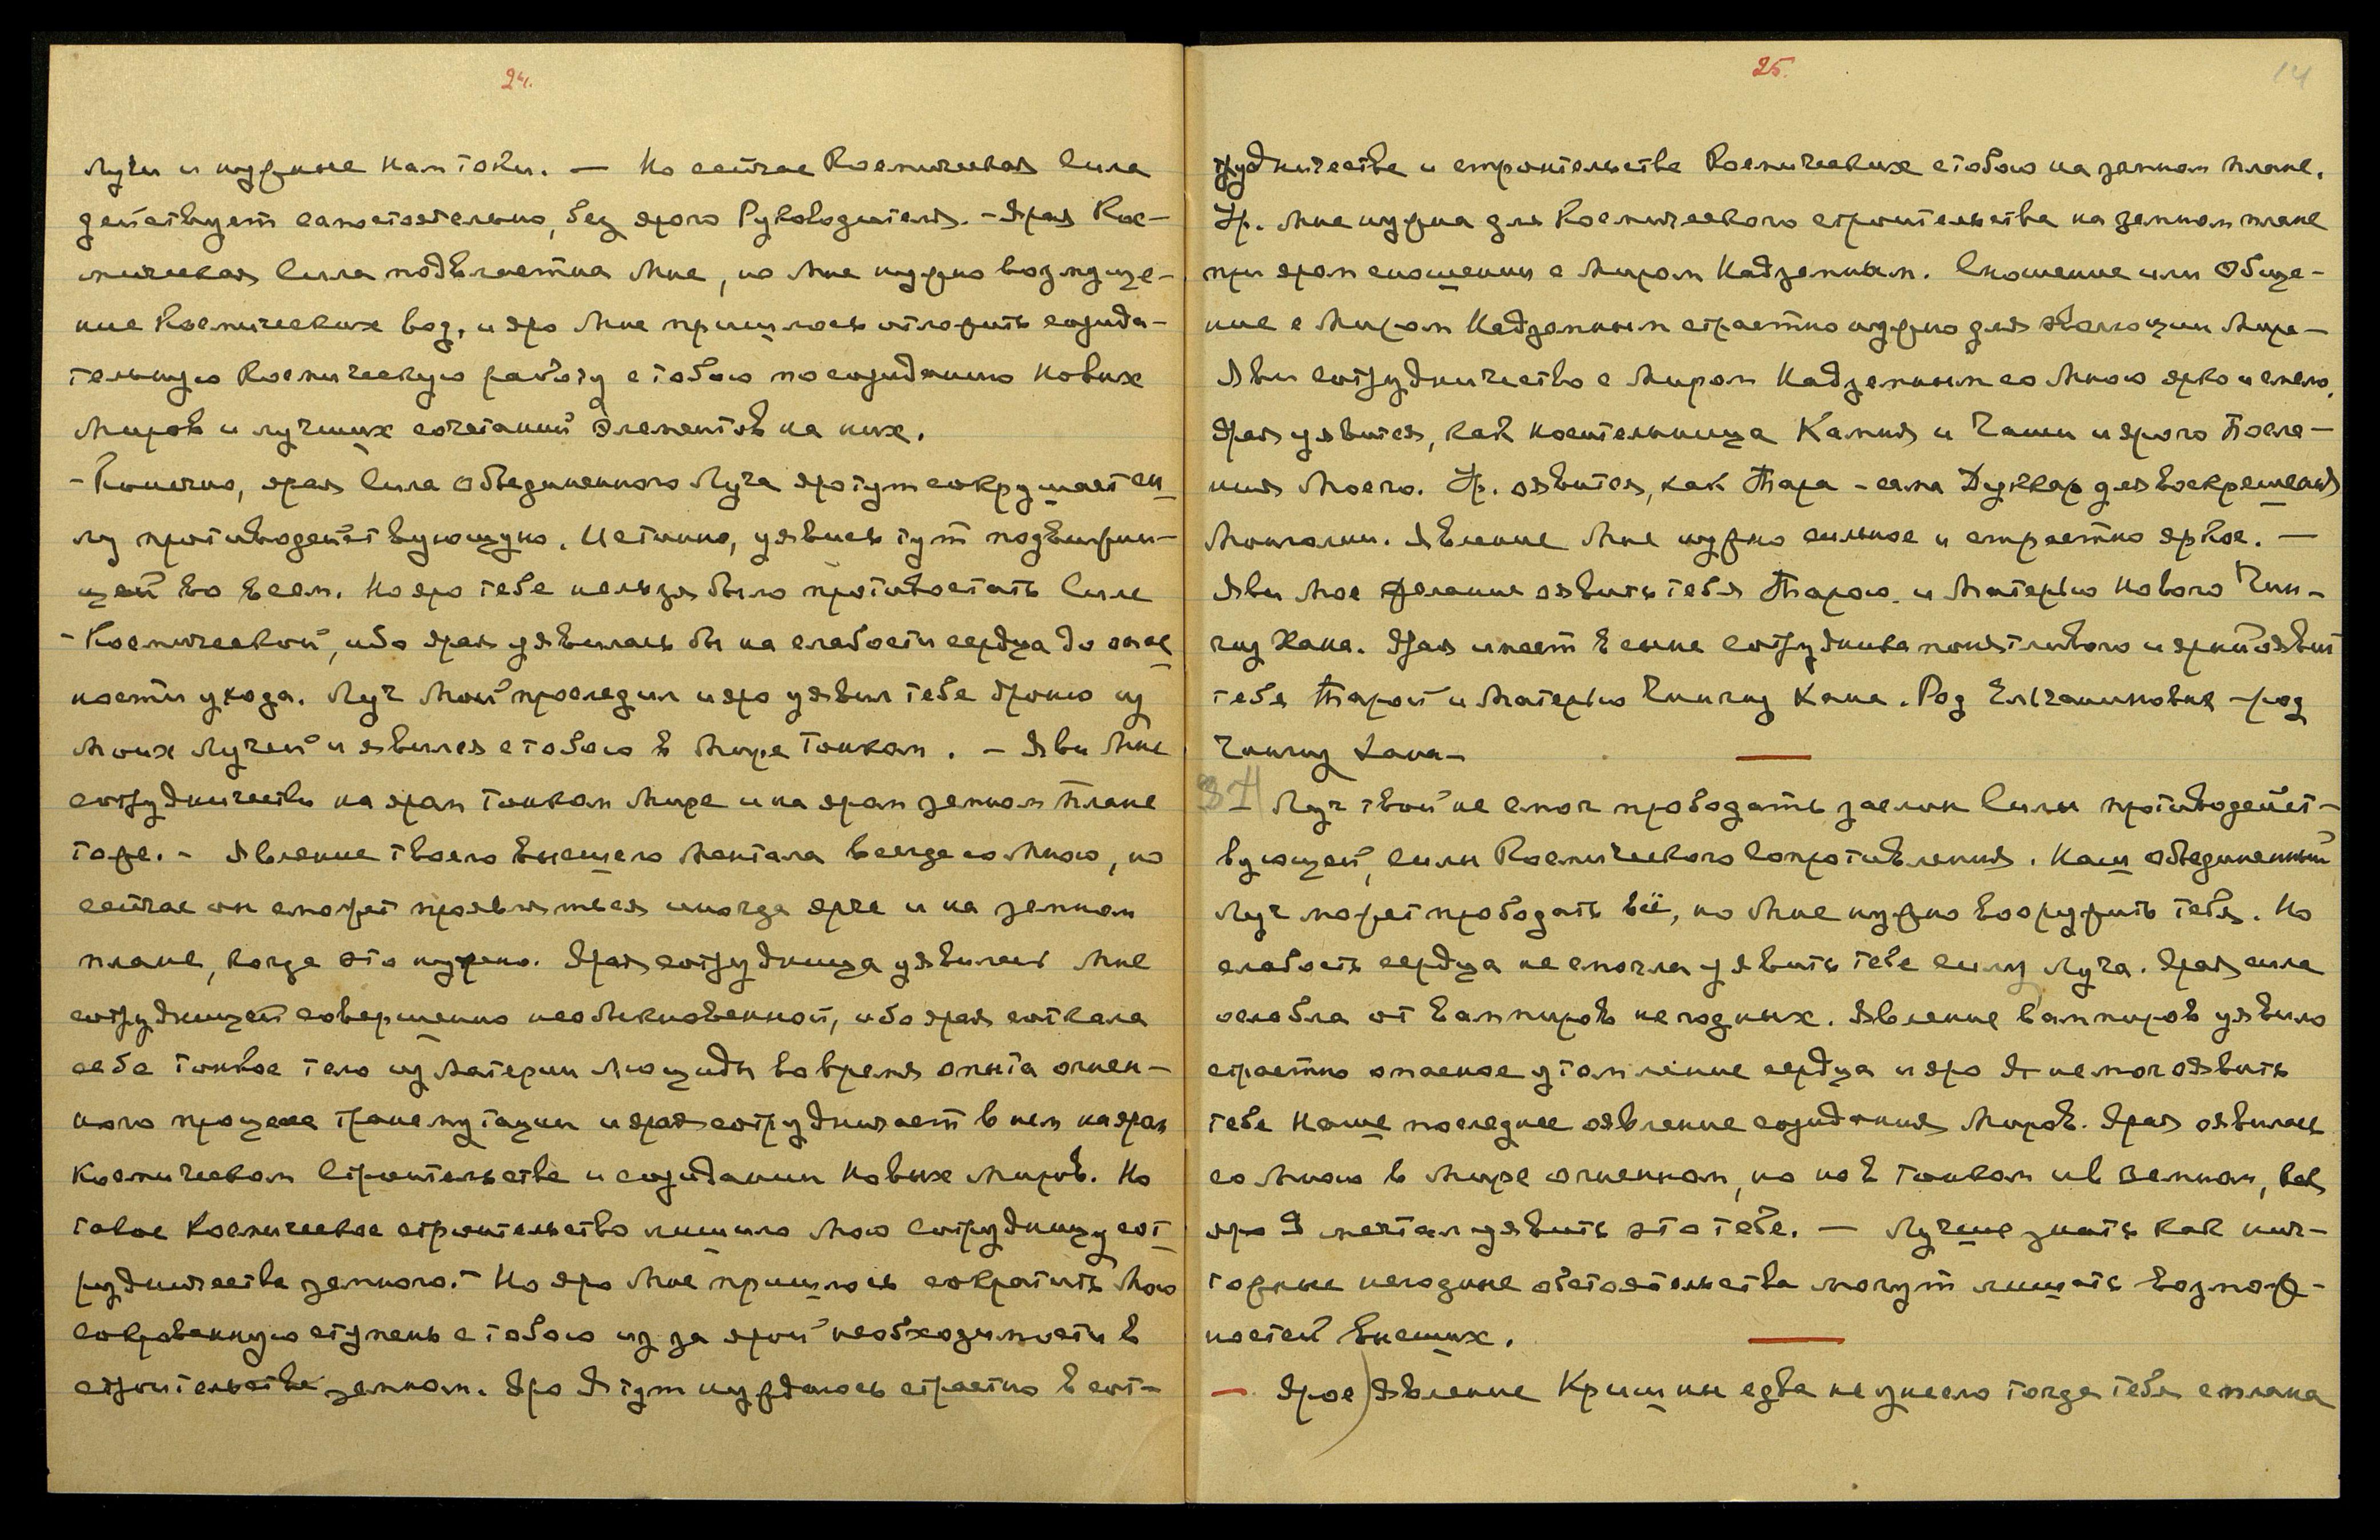 24.
Лучи и нужные Нам токи. — Но сейчас Космическая Сила
действует самостоятельно, без ярого Руководителя. – Ярая Кос-
мическая Сила подвластна Мне, но Мне нужно возмуще-
ние Космических вод, и яро Мне пришлось отложить созида-
тельную Космическую работу с тобою по созиданию Новых
Миров и лучших сочетаний Элементов на них.
– Конечно, ярая Сила Объединенного Луча яро тут сокрушает си-
лу противодействующую. Истинно, уявись тут подвижни-
цей во всем. Но яро тебе нельзя было противостать Силе
– Космической, ибо ярая уявилась бы на слабости сердца до опас
ности ухода. Луч Мой проследил и яро уявил тебе броню из
Моих Лучей и явился с тобою в Мире Тонком. – Яви Мне
сотрудничество на яром Тонком Мире и на яром земном Плане
тоже. – Явление твоего Высшего Ментала всегда со Мною, но
сейчас он сможет проявляться иногда ярче и на земном
плане, когда это нужно. Ярая сотрудница уявилась Мне
сотрудницей совершенно необыкновенной, ибо ярая соткала
себе тонкое тело из Материи Люциды во время опыта огнен-
ного процесса трансмутации и ярая сотрудничает в нем на яром
Космическом Строительстве и созидании Новых Миров. Но
такое Космическое строительство лишило Мою Сотрудницу сот
рудничества земного. – Но яро Мне пришлось сократить Мою
Сокровенную ступень с тобою из за ярой необходимости в
строительстве земном. Яро Я тут нуждаюсь страстно в сот-
25.
14
рудничестве и строительстве Космических с тобою на земном плане.
Ур. Мне нужна для Космического строительства на земном плане
при яром сношении с Миром Надземным. Сношение или Обще-
ние с Миром Надземным страстно нужно для эволюции Мира –
Яви сотрудничество с Миром Надземным со Мною ярко и смело.
Ярая уявится, как носительница Камня и Чаши и ярого Посла-
ния Моего. Ур. оявится, как Тара – сама Дуккар для воскрешения
Монголии. Явление Мне нужно сильное и страстно яркое. —
Яви Мое желание оявить тебя Тарою и Матерью Нового Чин-
гиз Хана. Ярая имеет в сыне сотрудника понятливого и ярый оявит
тебя Тарой и Матерью Чингиз Хана. Род Елчаниновых – род
Чингиз Хана –
Луч твой не смог прободать заслон Силы противодейст-
вующей, силы Космического Сопротивления. Наш Объединенный
Луч может прободать всё, но Мне нужно вооружить тебя. Но
слабость сердца не смогла уявить тебе силу Луча. Ярая сила
ослабла от вампиров негодных. Явление вампиров уявило
страстно опасное утомление сердца и яро Я не мог оявить
тебе Наше последнее оявление созидания Миров. Ярая оявилась
со Мною в Мире огненном, но не в Тонком и в Земном, как
яро Я мечтал уявить это тебе. — Лучше знать как нич-
тожные негодные обстоятельства могут лишать возмож-
ностей Высших.
— Ярое) Явление Кришны едва не унесло тогда тебя с плана